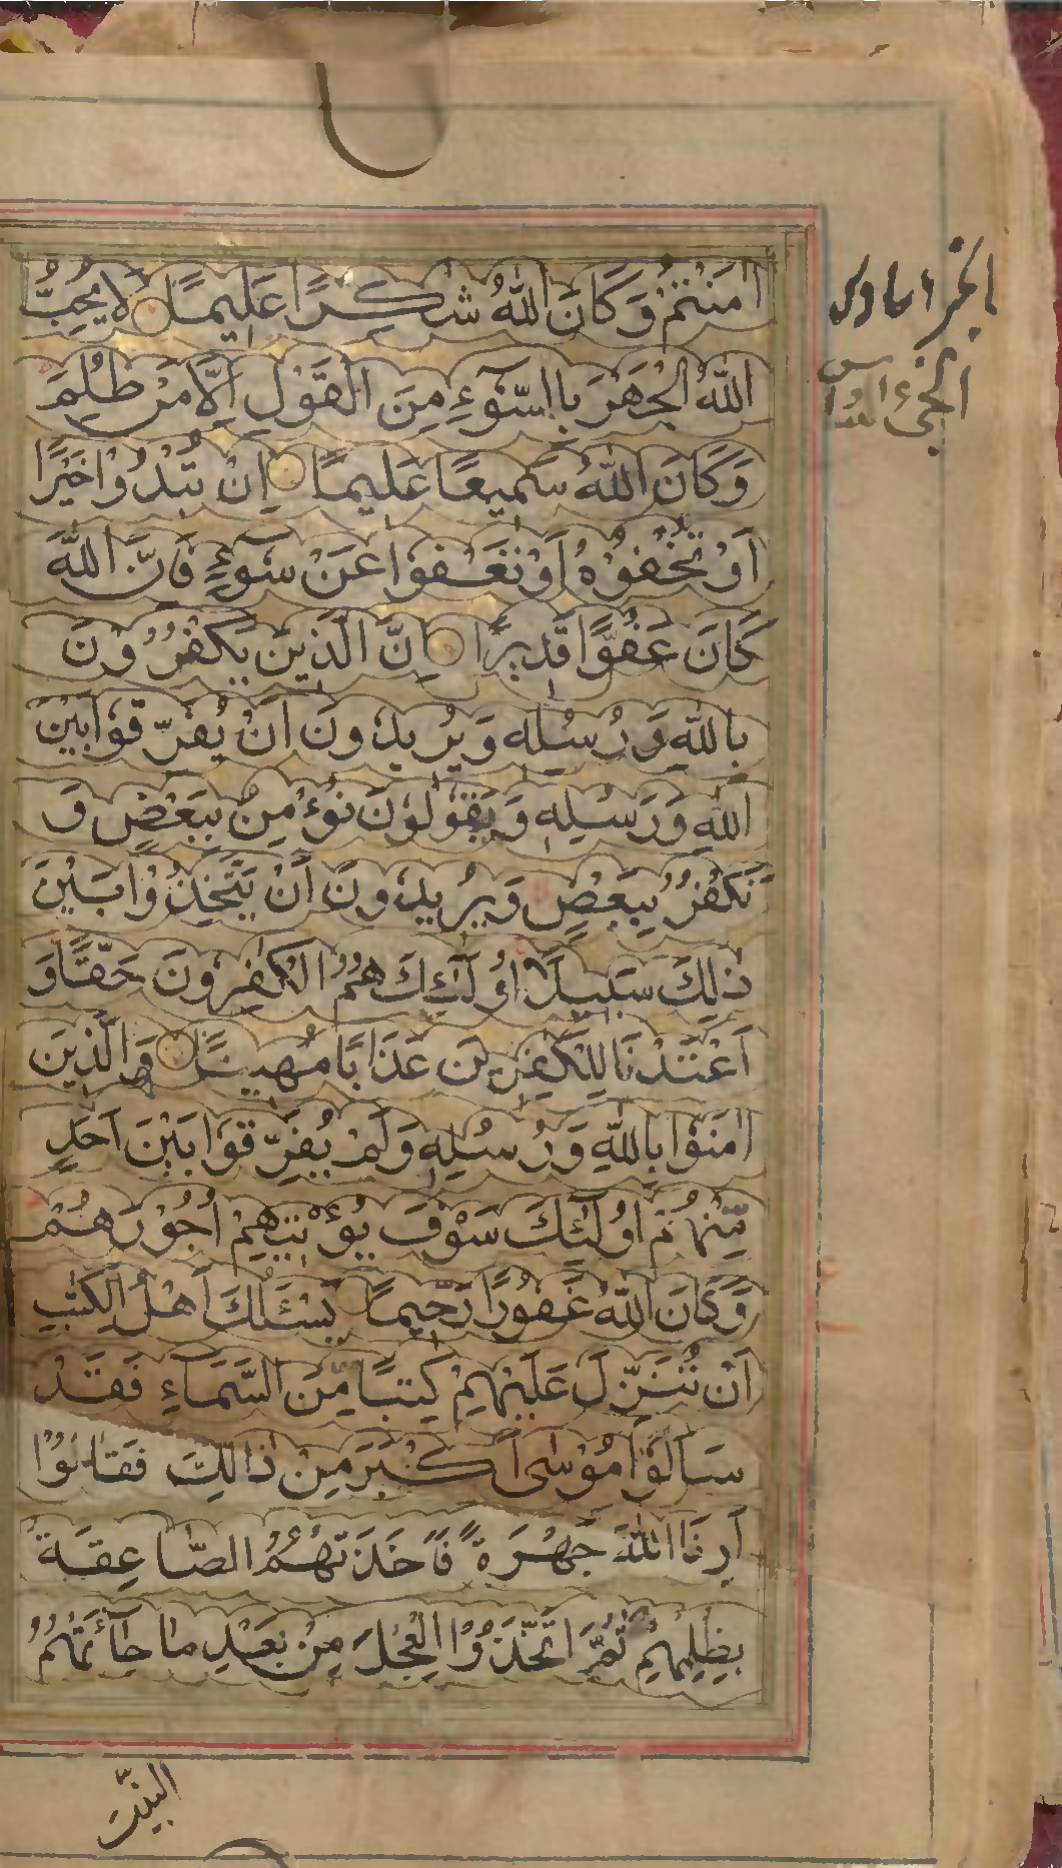 اٰمَنْتُمْ وَكَانَ اللّٰهُ شٰكِرًا عَلِيمًا لَا يُحِبُّ
اللّٰهُ الْجَهْرَ بِالسُّوٓءِ مِنَ الْقَوْلِ اِلَّا مَنْ ظُلِمَ
وَكَانَ اللّٰهُ سَمِيعًا عَلِيمًا اِنْ تُبْدُوْا خَيْرًا
اَوْ تُخْفُوْهُ اَوْ تَعْفُوْا عَنْ سُوٓءٍ فَاِنَّ اللّٰهَ
كَانَ عَفُوًّا قَدِيرًا اِنَّ الَّذِينَ يَكْفُرُونَ
بِاللّٰهِ وَرُسُلِهٖ وَيُرِيدُونَ اَنْ يُفَرِّقُوْا بَيْنَ
اللّٰهِ وَرُسُلِهٖ وَيَقُولُونَ نُؤْمِنُ بِبَعْضٍ وَ
نَكْفُرُ بِبَعْضٍ وَيُرِيدُونَ اَنْ يَتَّخِذُوْا بَيْنَ
ذٰلِكَ سَبِيلًا اُولٰٓئِكَ هُمُ الْكٰفِرُونَ حَقًّا وَ
اَعْتَدْنَا لِلْكٰفِرِينَ عَذَابًا مُهِينًا وَالَّذِينَ
اٰمَنُوْا بِاللّٰهِ وَرُسُلِهٖ وَلَمْ يُفَرِّقُوْا بَيْنَ اَحَدٍ
مِّنْهُمْ اُولٰٓئِكَ سَوْفَ يُؤْتِيهِمْ اُجُوْرَهُمْ
وَكَانَ اللّٰهُ غَفُورًا رَّحِيمًا يَسْئَلُكَ اَهْلُ الْكِتٰبِ
اَنْ تُنَزِّلَ عَلَيْهِمْ كِتٰبًا مِّنَ السَّمَآءِ فَقَدْ
سَاَلُوْا مُوْسٰى اَكْبَرَ مِنْ ذٰالِكَ فَقَالُوْا
اَرِنَا اللّٰهَ جَهْرَةً فَاَخَذَتْهُمُ الصَّاعِقَةُ
بِظُلْمِهِمْ ثُمَّ اتَّخَذُوْا الْعِجْلَ مِنْ بَعْدِ مَا جَآءَتْهُمُ
البيّنٰت
الجزء السادس
الجزء السادس